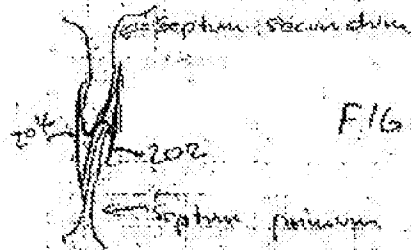 Septum secundum
FIG
204
202
Septum primum